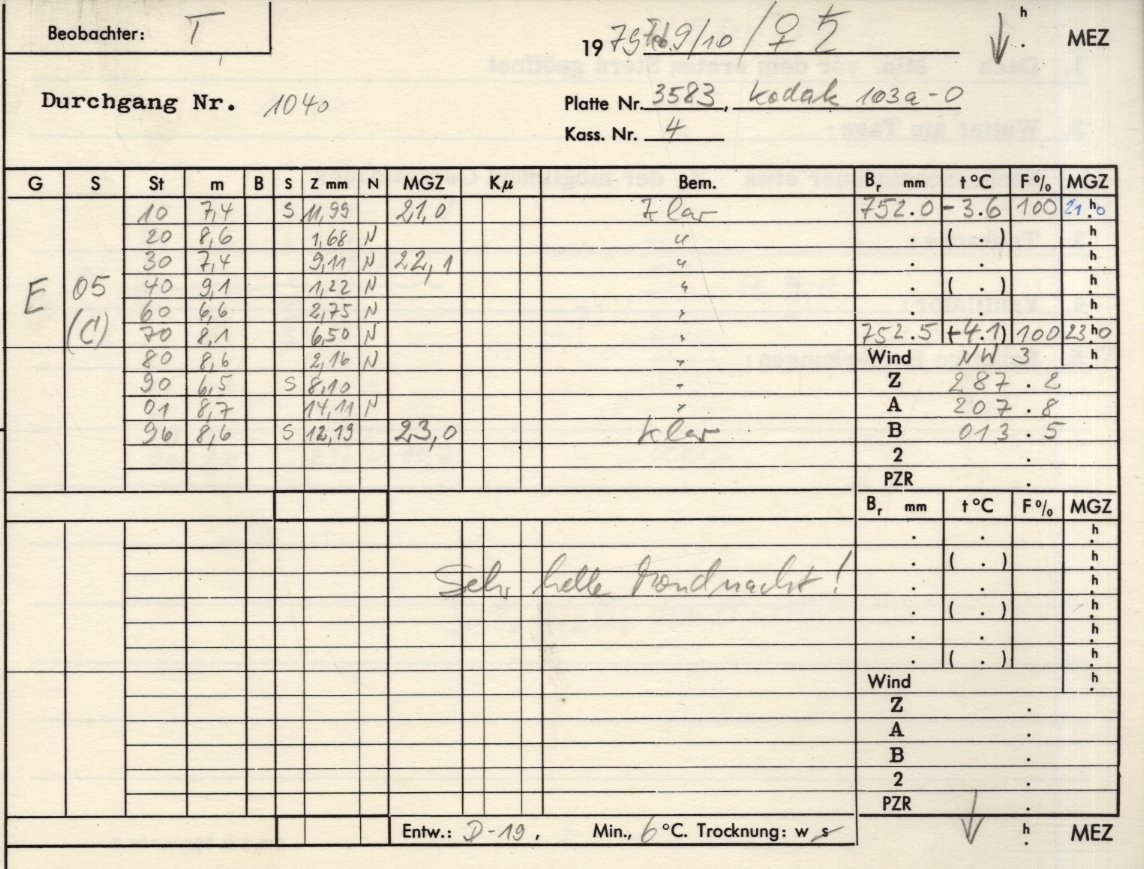 Beobachter: T
1979 Feb. 9/10 / ♀ ♄
h . MEZ
Durchgang Nr. 1040
Platte Nr. 3583, Kodak 103a-O
Kass. Nr. 4
G S St m B S Z mm N MGZ Kμ Bem. Br mm t °C F% MGZ
10 7,4 S 11,95 21,0 klar 752.0 -3.6 100 21.h0
20 8,6 1,68 N " . ( . ) h.
30 7,4 9,11 N 22,1 " . . h.
E 05 40 9,1 1,22 N " . ( . ) h.
60 6,6 2,75 N " . . h.
(C) 70 8,1 6,50 N " 752.5 (+4.1) 100 23.h0
80 8,6 2,16 N " Wind NW 3 h.
90 6,5 S 8,10 " Z 287.2
01 8,7 14,11 N " A 207.8
96 8,6 S 12,19 23,0 klar B 013.5
2 .
PZR .
Br mm t °C F% MGZ
. . h.
. ( . ) h.
Sehr helle Mondnacht! . . h.
. ( . ) h.
. . h.
. ( . ) h.
Wind h.
Z .
A .
B .
2 .
PZR .
Entw.: D-19, Min., 6 °C. Trocknung: w s
h . MEZ